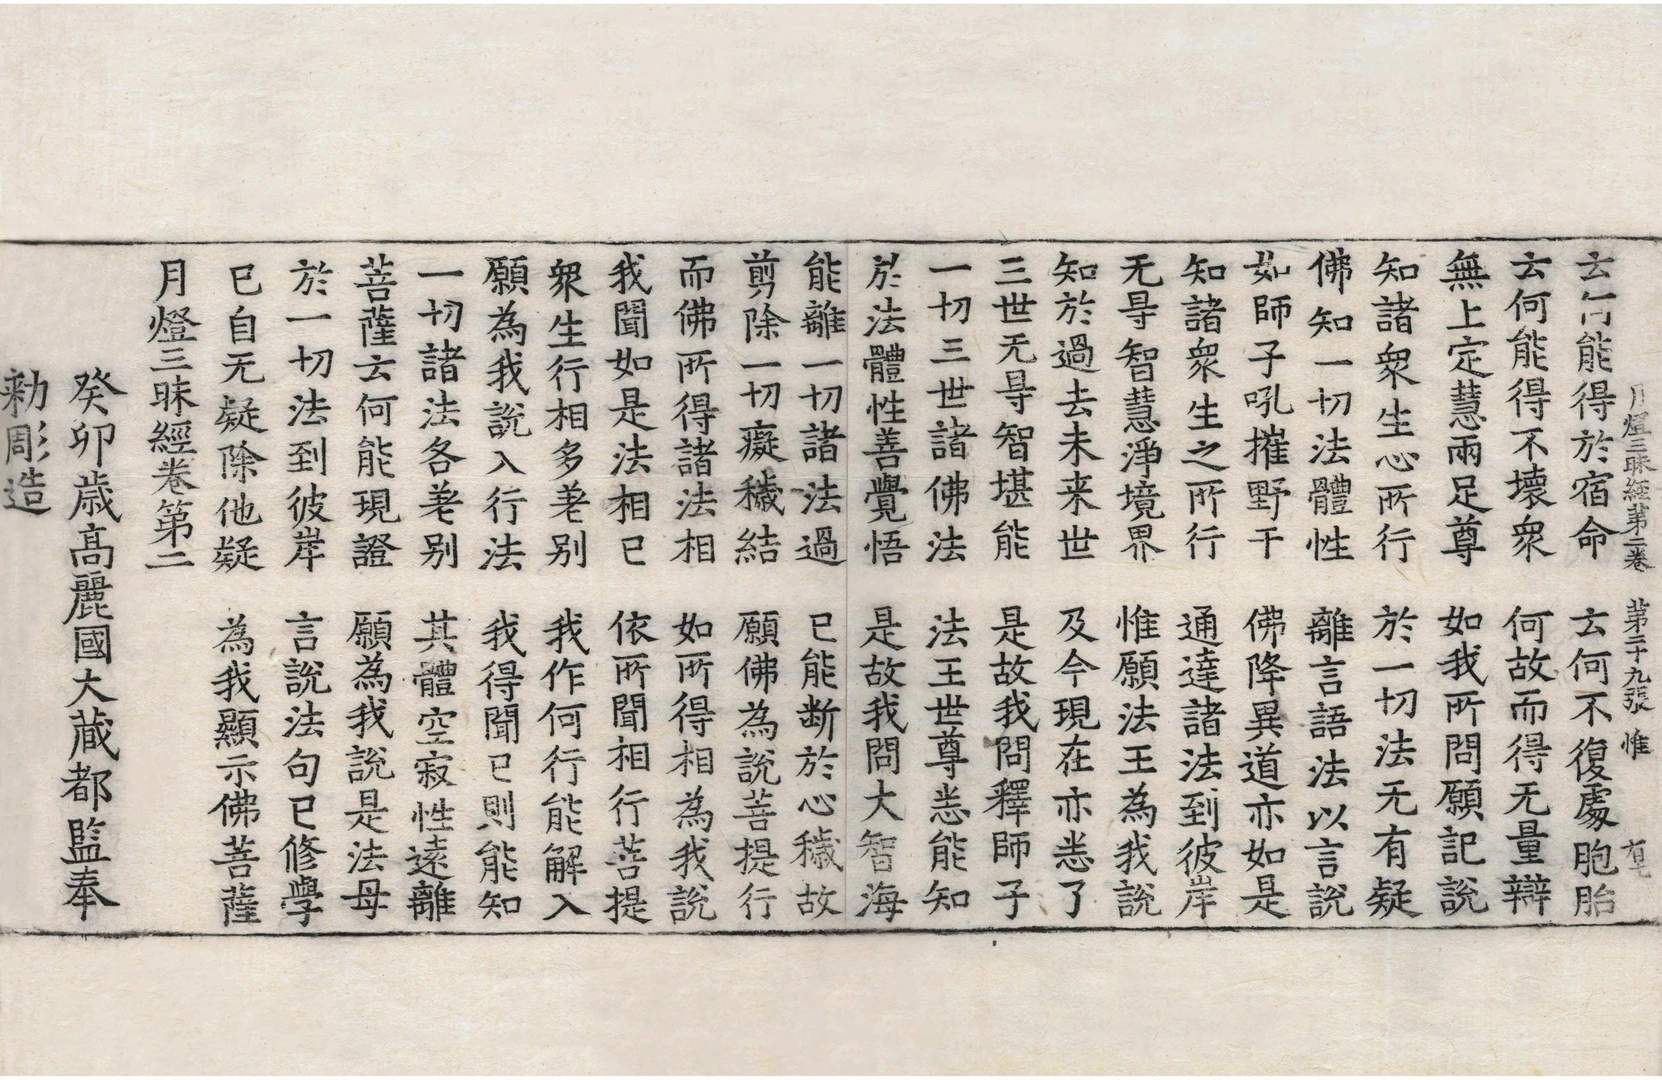 月燈三昧經第二卷　第二十九張　惟
云何能得於宿命　云何不復處胞胎
云何能得不壞衆　何故而得无量辯
無上定慧兩足尊　如我所問願記說
知諸衆生心所行　於一切法无有疑
佛知一切法體性　離言語法以言說
如師子吼摧野干　佛降異道亦如是
知諸衆生之所行　通達諸法到彼岸
无㝵智慧淨境界　惟願法王為我說
知於過去未来世　及今現在亦悉了
三世无㝵智堪能　是故我問釋師子
一切三世諸佛法　法王世尊悉能知
於法體性善覺悟　是故我問大智海
能離一切諸法過　已能断於心穢故
剪除一切癡穢結　願佛為說菩提行
而佛所得諸法相　如所得相為我說
我聞如是法相已　依所聞相行菩提
衆生行相多差别　我作何行能解入
願為我說入行法　我得聞已則能知
一切諸法各差别　其體空寂性遠離
菩薩云何能現證　願為我說是法母
於一切法到彼岸　言說法句已修學
已自无疑除他疑　為我顯示佛菩薩
月燈三昧經卷第二
癸卯歲高麗國大藏都監奉
勅彫造